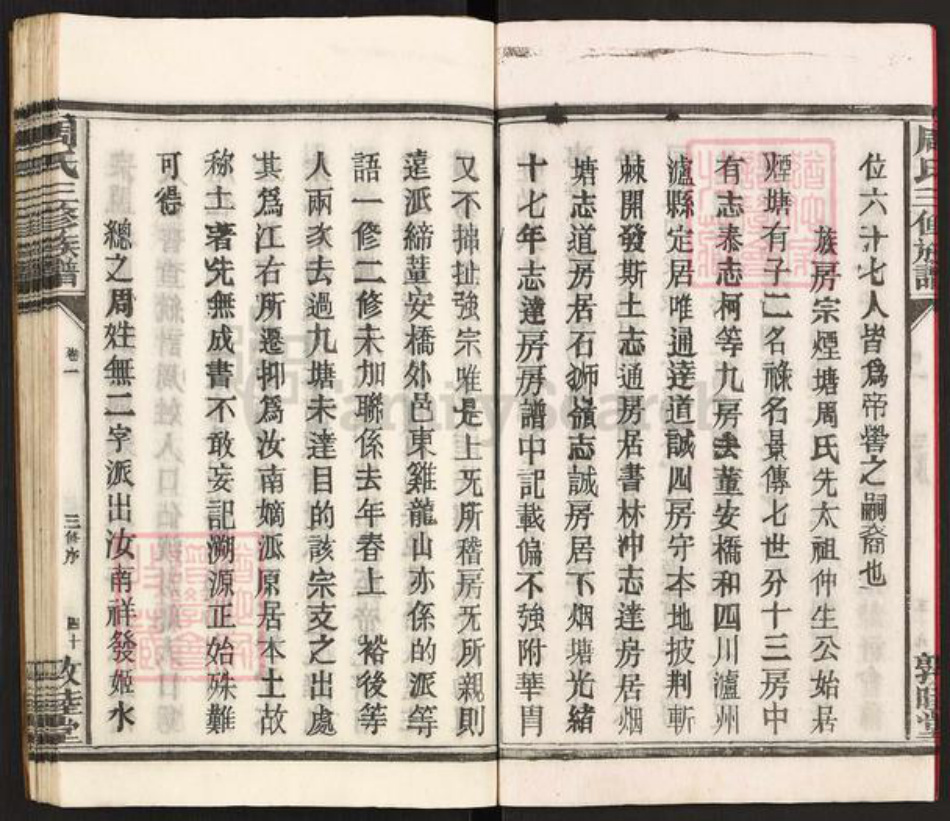 周氏三修族譜
敦睦堂
位六十七人皆爲帝嚳之嗣裔也
族房宗煙塘周氏先太祖仲生公始居
煙塘有子二名祿名景傳七世分十三房中
有志泰志柯等九房去董安橋和四川瀘州
瀘縣定居唯通達道誠四房守本地披荆斬
棘開發斯土志通房居書林冲志達房居烟
塘志道房居石獅嶺志誠房居下烟塘光緒
十七年志達房房譜中記載偏不強附華胄
又不拙扯強宗唯是上旡所稽房旡所親則
遠派締董安橋外邑東雞龍山亦係的派等
語一修二修未加聯係去年春上 裕後等
人兩次去過九塘未達目的該宗支之出處
其爲江右所遷抑爲汝南嫡派原居本土故
称土著先無成書不敢妄記溯源正始殊難
可得
總之周姓無二字派出汝南祥發姬水
周氏三修族譜
卷一
三修序
四十
敦睦堂
FamilySearch